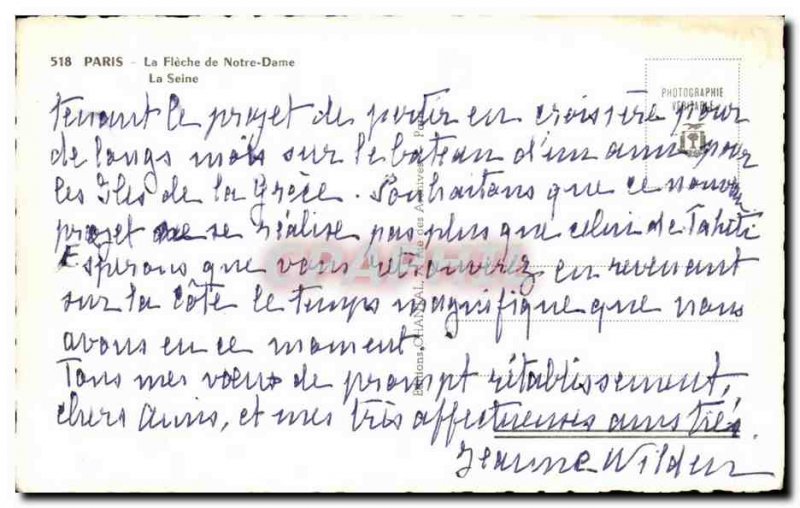 518 PARIS - La Flèche de Notre-Dame
La Seine
PHOTOGRAPHIE
VERITABLE
tenant le projet de partir en croisière pour
de longs mois sur le bateau d'un ami pour
les Îles de la Grèce. Souhaitons que ce nouveau
projet ne se réalise pas plus que celui de Tahiti
Espérons que vous retrouverez en revenant
sur la côte le temps magnifique que nous
avons en ce moment.
Tous mes vœux de prompt rétablissement,
chers amis, et mes très affectueuses
Jeanne
Editions CHANTAL
des Archives